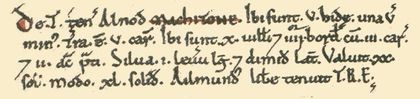 De .T. ten& Alnod ibi sunt .v. hide una v
min'. Tra .e. v. car'. Ibi sunt .x. uilli 7 iii. bord'. cu .iii. car'.
7 ii. ac pti. Silua .i. leuu lg'. 7 dimid lat'. Valuit .xx.
sol'. modo .xl. solid'. Ailmund' libe tenuit T.R.E.